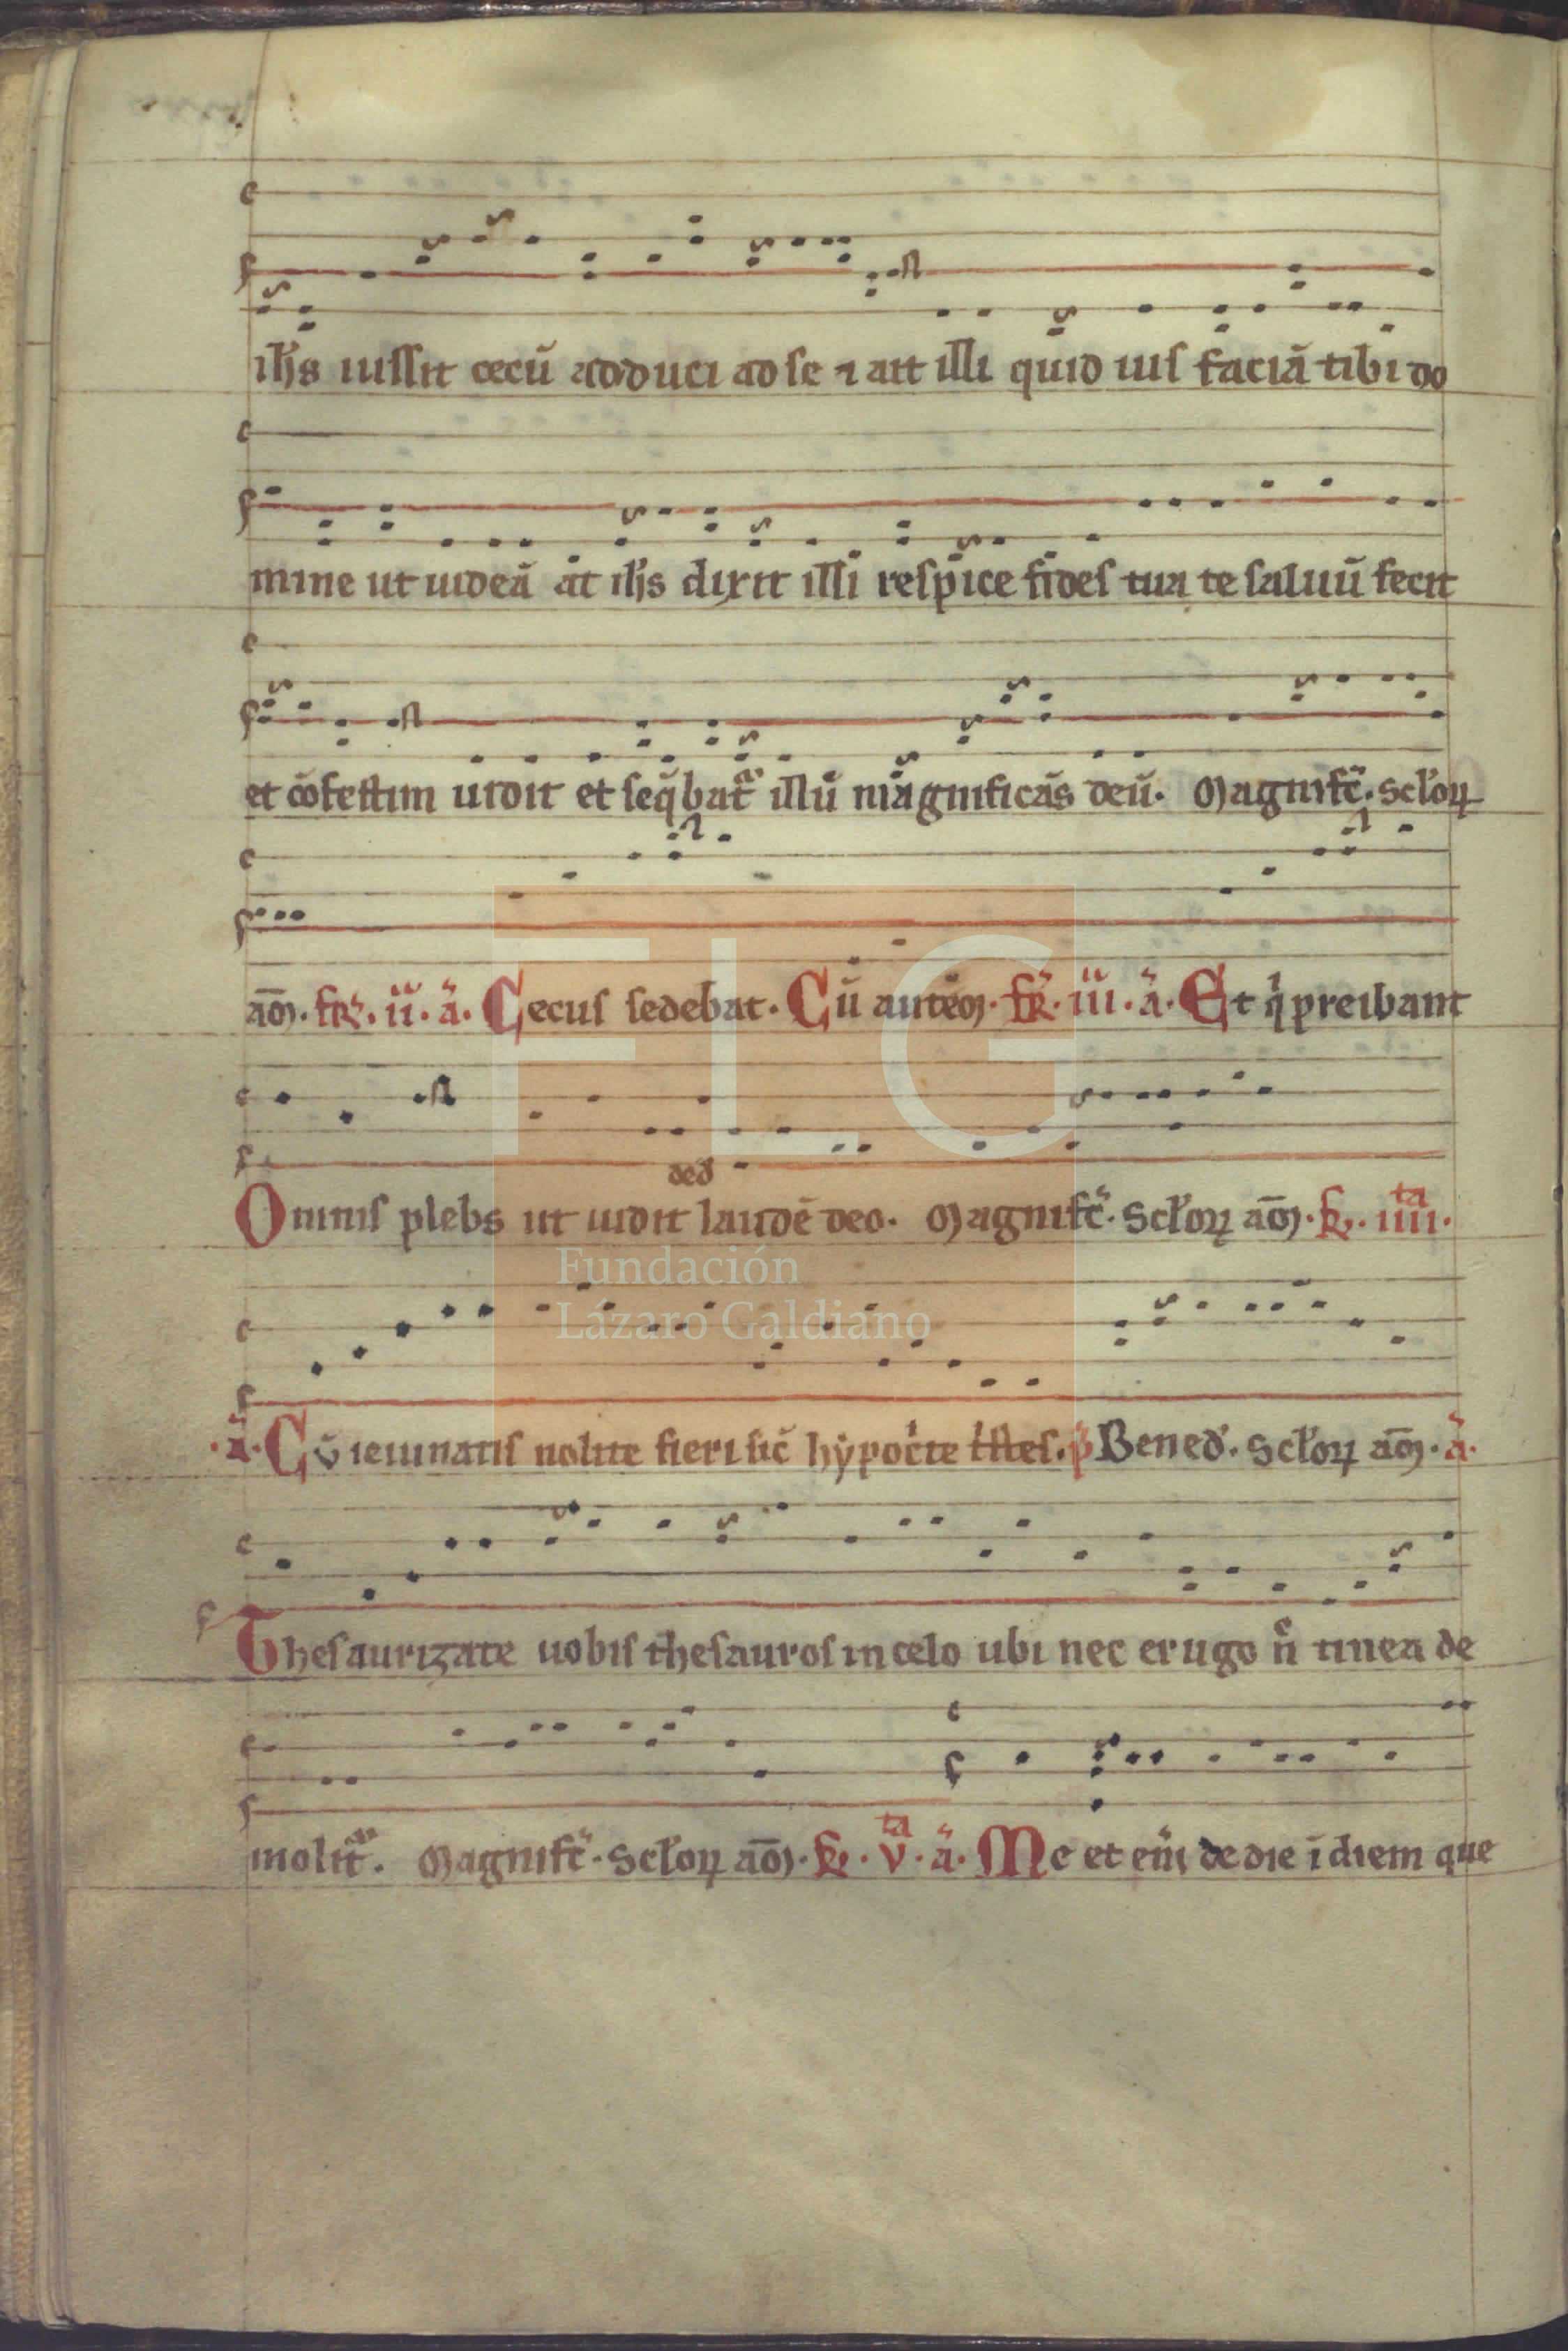 ih̄s iussit cecū adduci ad se ⁊ ait illi quid uis faciā tibi do
mine ut uideā at ih̄s dixit illi respice fides tua te saluū fecit
et cōfestim uidit et seq̄bat᷑ illū magnificās deū. Magnifc̄. Sc̄loꝝ
am̄. fr̄. ii. a. Cecus sedebat. Cū autem. fr̄. iii. a. Et q̇ preibant
ded̄
Omnis plebs ut uidit laudē deo. Magnifc̄. Sc̄loꝝ am̄. fr̄. iiii.ta
.a. Cū ieiunatis nolite fieri sic̄ hẏpoc̓te t̓stes. p̄ Bened̄. Sc̄loꝝ am̄. a.
Thesaurizate uobis thesauros in celo ubi nec erugo n̄ tinea de
molit᷑. Magnifc̄. Sc̄loꝝ am̄. fr̄. v.ta a. Me et eni᷑ de die ī diem que
FLG
Fundación
Lázaro Galdiano